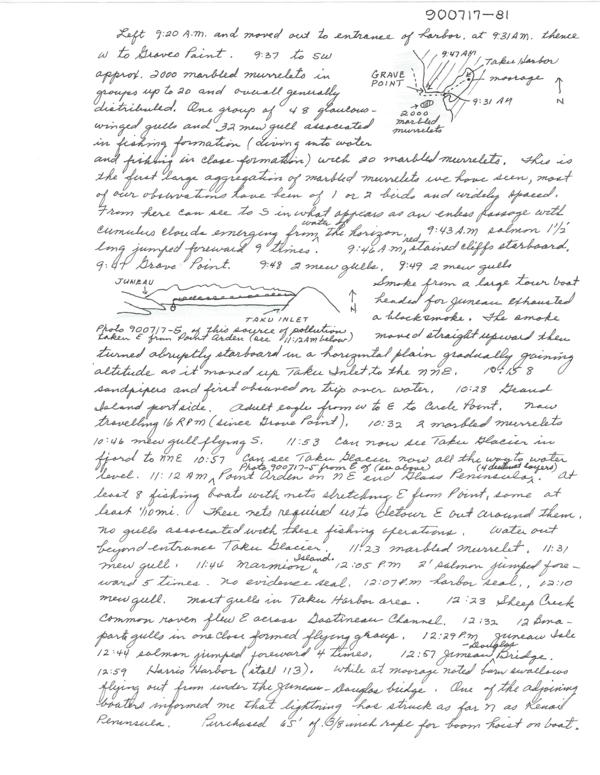 900717-81
Left 9:20 A.M. and moved out to entrance of harbor, at 9:31 AM. thence
W to Graves Point. 9:37 to SW
approx. 2000 marbled murrelets in
groups up to 20 and overall generally
distributed. One group of 48 glaucous-
winged gulls and 32 mew gull associated
in fishing formation (diving into water
9:47 AM
Taku Harbor
moorage
GRAVE
POINT
9:31 AM
N
2000
marbled
murrelets
and fishing in close formation) with 20 marbled murrelets. This is
the first large aggregation of marbled murrelets we have seen, most
of our observations have been of 1 or 2 birds and widely spaced.
From here can see to S in what appears as an enless passage with
cumulus clouds emerging from water of the horizon. 9:43 A.M salmon 1½'
long jumped foreward 9 times. 9:46 A.M, red stained cliffs starboard.
9:47 Grave Point. 9:48 2 mew gulls, 9:49 2 mew gulls
JUNEAU
TAKU INLET
N
Photo 900717-5, of this source of pollution
taken E from Point Arden (see 11:12 AM below)
Smoke from a large tour boat
headed for Juneau exhausted
a black smoke. The smoke
moved straight upward then
turned abruptly starboard in a horizontal plain gradually gaining
altitude as it moved up Taku Inlet to the NNE. 8
sandpipers and first observed on trip over water. 10:28 Grand
Island port side. Adult eagle from W to E to Circle Point. Now
travelling 16 RPM (since Grove Point). 10:32 2 marbled murrelets
10:46 mew gull flying S. 11:53 Can now see Taku Glacier in
fjord to NNE 10:57 Can see Taku Glacier now all the way to water
level. 11:12 AM Photo 900717-5 from E of (see above) Point Arden on NE end Glass Peninsula. At
least 8 fishing boats with nets stretching E from Point, some at
least 1/10 mi. These nets required us to detour E out around them.
no gulls associated with these fishing operations. Water out
beyond entrance Taku Glacier. 11:23 marbled murrelet. 11:31
mew gull. 11:44 Marmion Island. 12:05 P.M 2' salmon jumped fore-
ward 5 times. no evidence seal. 12:07 P.M harbor seal., 12:10
mew gull. most gulls in Taku Harbor area. 12:23 Sheep Creek
Common raven flew E across Gastineau Channel. 12:32 12 Bona-
parte gulls in one close formed flying group. 12:29 P.M Juneau Isle
12:44 salmon jumped foreward 4 times. 12:57 Juneau-Douglas Bridge.
12:59 Harris Harbor (stall 113). While at moorage noted barn swallows
flying out from under the Juneau-Douglas bridge. One of the adjoining
boaters informed me that lightning has struck as far N as Kenai
Peninsula. Purchased 65' of 3/8 inch rope for boom hoist on boat.